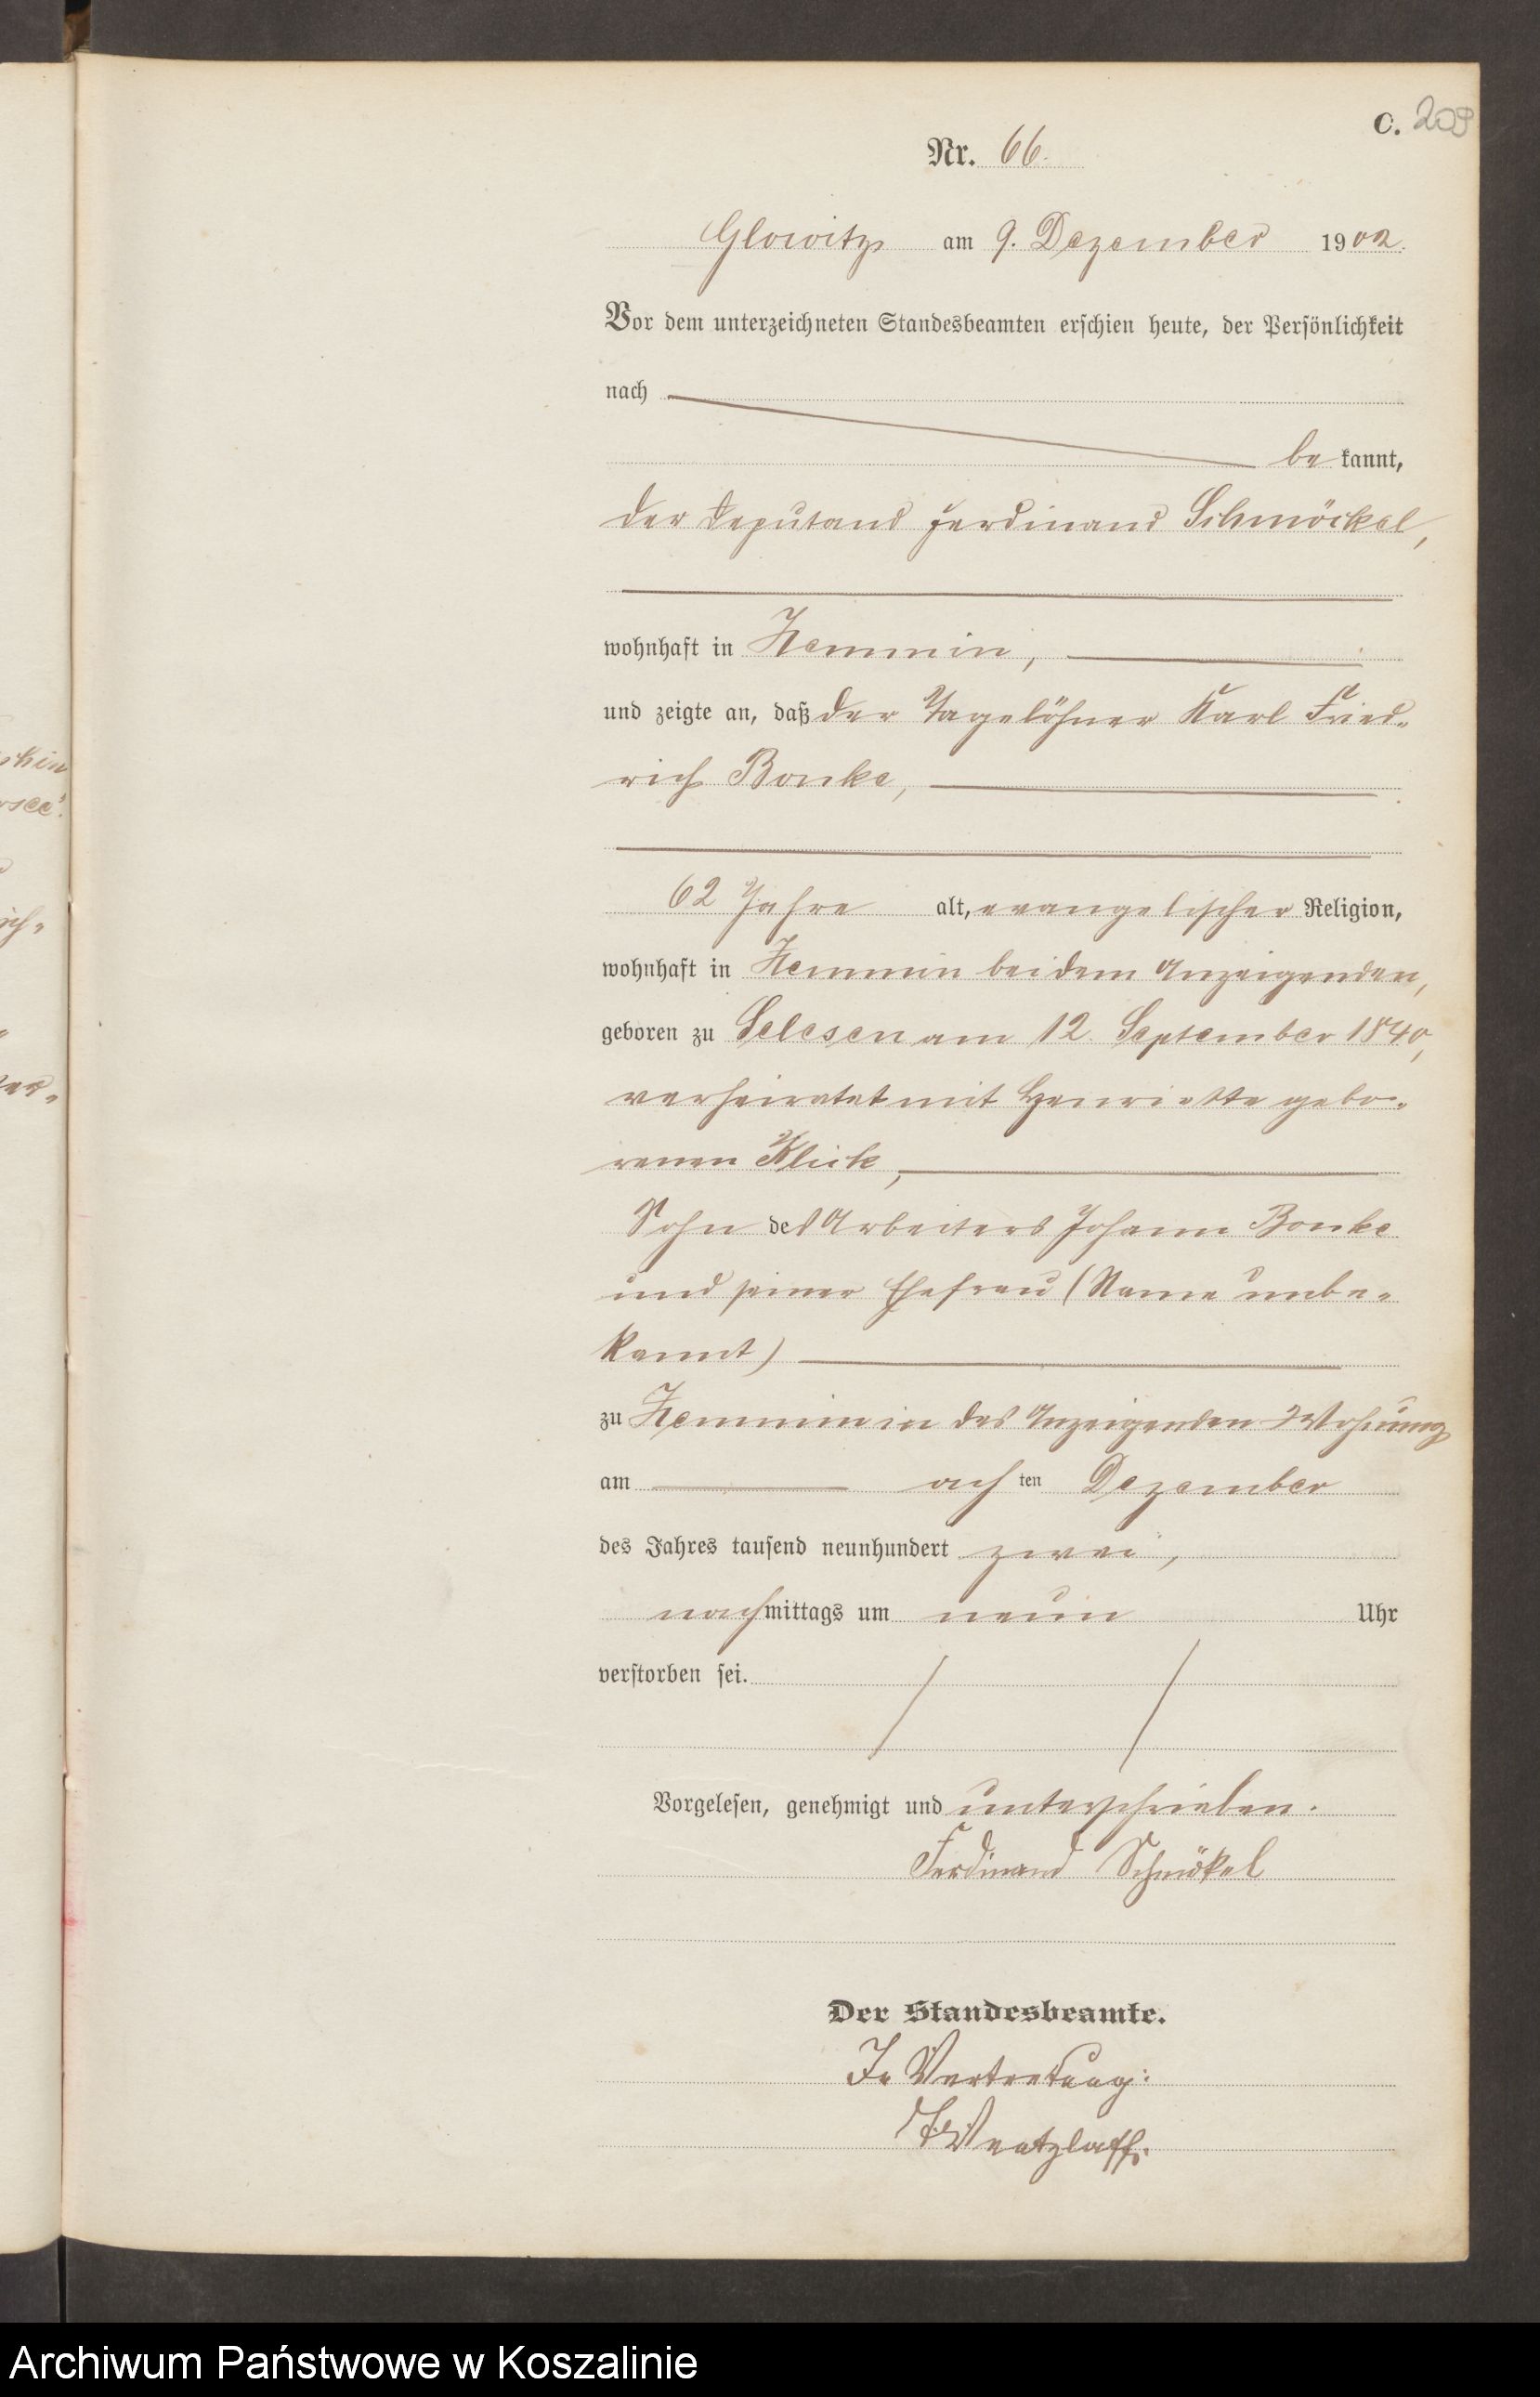 C. 209
Nr. 66.
Glowitz am 9. Dezember 1902.
Vor dem unterzeichneten Standesbeamten erschien heute, der Persönlichkeit
nach
be kannt,
der Deputand Ferdinand Schmöckel,
wohnhaft in Zemmin,
und zeigte an, daß der Tagelöhner Karl Fried-
rich Bonke,
62 Jahre alt, evangelischer Religion,
wohnhaft in Zemmin bei dem Anzeigenden,
geboren zu Selesen am 12. September 1840,
verheiratet mit Henriette gebo-
renen Klick,
Sohn des Arbeiters Johann Bonke
und seiner Ehefrau (Name unbe-
kannt)
zu Zemmin in des Anzeigenden Wohnung
am ach ten Dezember
des Jahres tausend neunhundert zwei,
nachmittags um neun Uhr
verstorben sei.
Vorgelesen, genehmigt und unterschrieben.
Ferdinand Schmökel
Der Standesbeamte.
In Vertretung:
Wentzlaff.
Archiwum Państwowe w Koszalinie